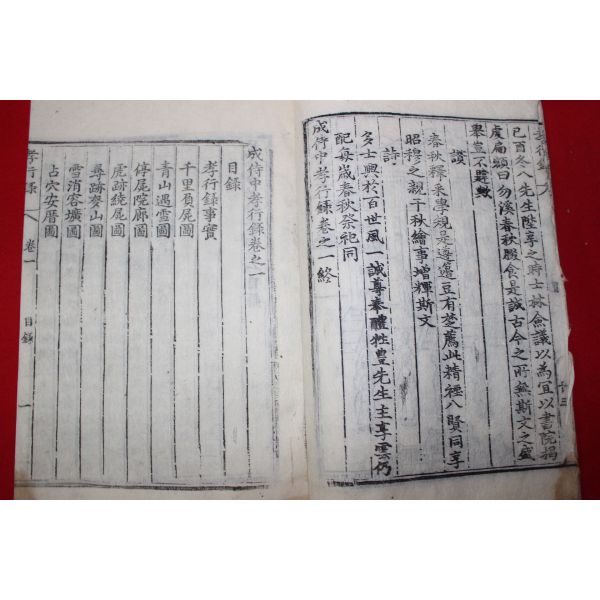 己酉冬八先生陞享之時士林僉議以為宜以書院揭
虔扁額曰勿溪春秋腏食是誠古今之所無斯文之盛
舉豈不韙歟
讚
春秋釋采專規是遵籩豆有楚薦此精禋八賢同享
昭穆之親千秋繪事增輝斯文
詩
多士興於百世風一誠摹奉醴牲豊先生主享雲仍
配每歲春秋祭祀同
成侍中孝行錄卷之一終
成侍中孝行錄卷之一
目錄
孝行錄事實
千里負尾圖
青山遇雪圖
停尾院廊圖
虎跡繞尾圖
尋跡麥山圖
雪消容壙圖
占穴安厝圖
孝行錄 卷一 目錄 一